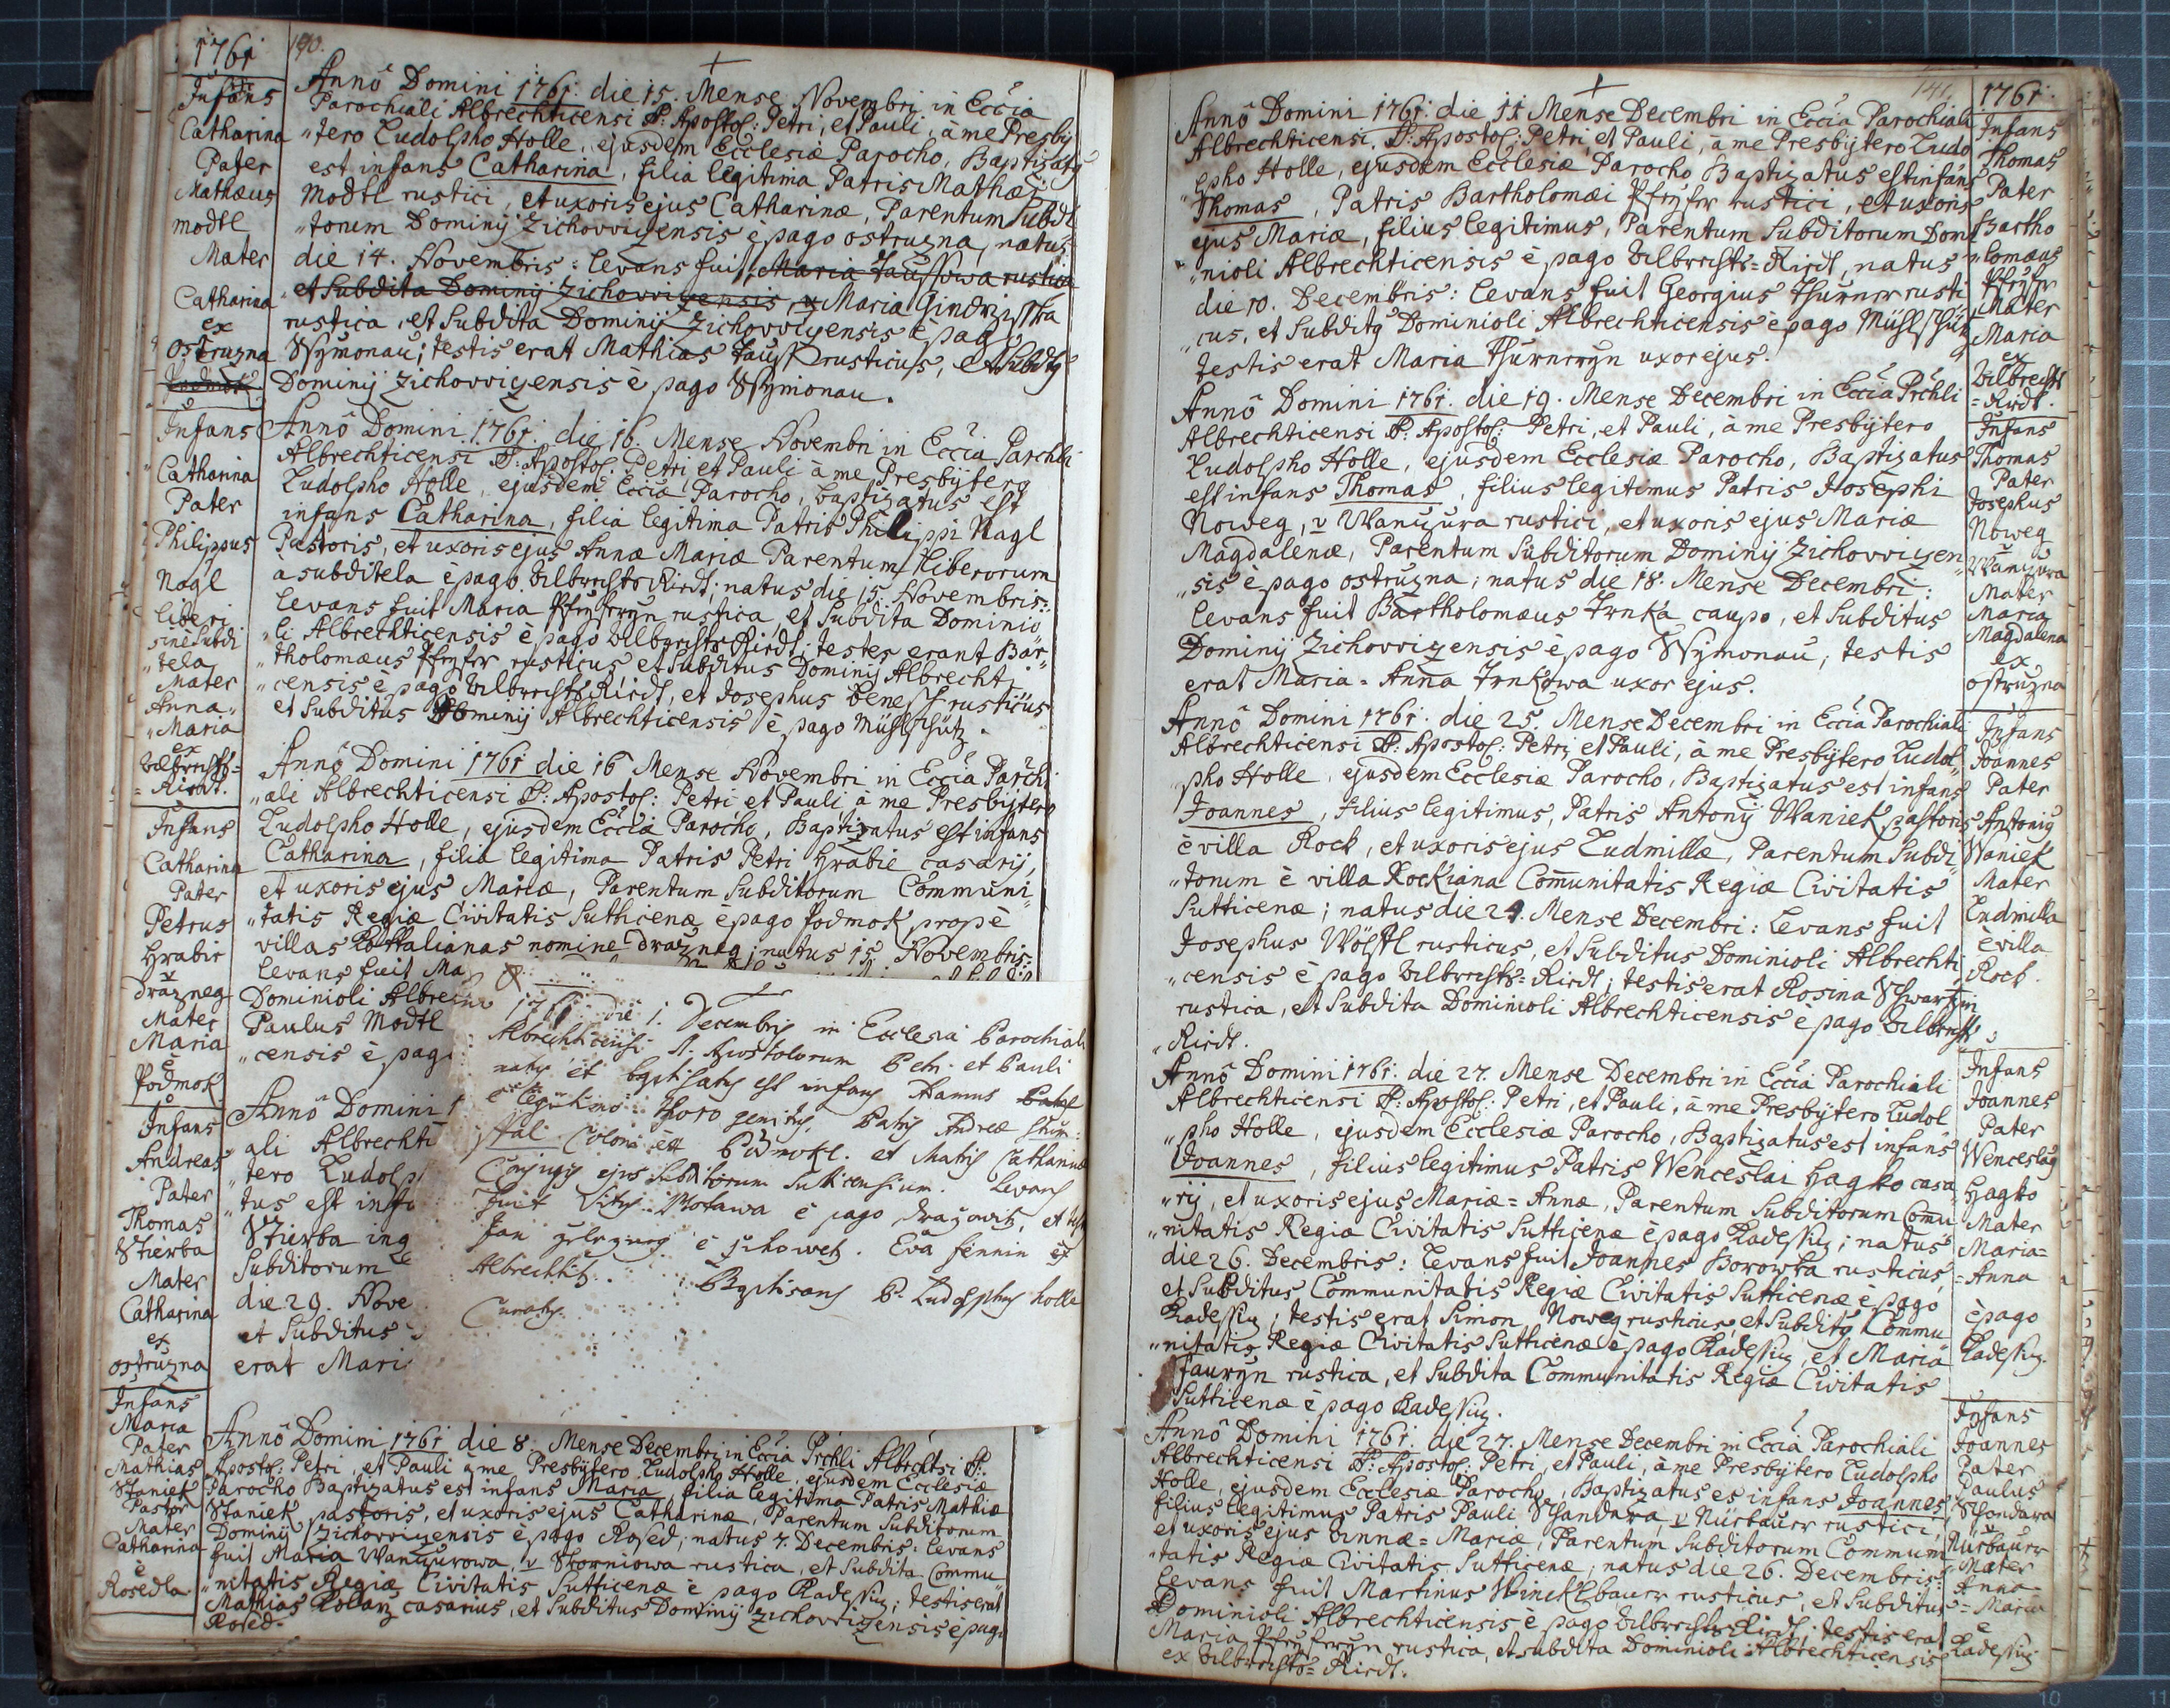 1761
Infans
Catharina
Pater
Mathæus
modtl
Mater
Catharina
ex
ostruzna
190.
Annô Domini 1761. die 15. Mense Novembri in Eccia
Parochiali Albrechticensi SS. Apostol: Petri, et Pauli, à me Presby
"tero Ludolpho Holle, ejusdem Ecclesiæ Parocho, Baptizatg
est infans Catharina, filia legitima Patris Mathæi
Modtl rustici, et uxoris ejus Catharinæ, Parentum Subdi
"torum Dominij Zichovvizensis è pago ostruzna, natus
die 14. Novembris: levans fuit, Maria Taussowa rustica
et Subdita Dominij Zichovvizensis, v Maria Gindrzischka
rustica, et Subdita Dominij Zichovvizensis è pago
Wymonau; testis erat Mathias Tausch rusticus, et Subdtg
Dominij Zichovvizensis è pago Wymonau.
Infans
Catharina
Pater
Philippus
Nagl
liberi
sine Subdi
"tela
Mater
Anna"
"Maria
ex
Vilbrechts=
=Riedt.
Annô Domini 1761. die 16. Mense Novembri in Eccia Parchli
Albrechticensi SS: Apostol: Petri, et Pauli à me Presbytero
Ludolpho Holle, ejusdem Ecciæ Parocho, baptizatus est
infans Catharina, filia legitima Patris Philippi Nagl
Pastoris, et uxoris ejus Annæ Mariæ Parentum liberorum
a subditela è pago Vilbrechts Riedt; natus die 15. Novembris:
levans fuit Maria Pfeyferryn rustica, et Subdita Dominio
"li Albrechticensis è pago Vilbrechts Riedt; testes erant Bar"
"tholomæus Pfeyfer rusticus et Subditus Dominij Albrechti
"censis è pago Vilbrechts Riedt, et Josephus benesch rusticus
et Subditus Dominij Albrechticensis è pago Mühlschütz.
Infans
Catharina
Pater
Petrus
Hrabie
v
drazneg
Mater
Maria
è
Podmok
Annô Domini 1761 die 16 Mense Novembri in Eccia Parchi
"ali Albrechticensi SS: Apostol: Petri et Pauli à me Presbytero
Ludolpho Holle, ejusdem Ecciæ Parocho, Baptizatus est infans
Catharina, filia legitima Patris Petri Hrabie casarij,
et uxoris ejus Mariæ, Parentum Subditorum Communi"
"tatis Regiæ Civitatis Suthicenæ è pago Podmok propè
villas Kottalianas nomine drazneg; natus 15. Novembris:
levans fuit Ma
Dominioli Albre
Paulus Modtl
"censis è pag
Infans
Andreas
Pater
Thomas
Stierba
Mater
Catharina
ex
ostruzna
Annô Domini 1
ali Albrechti
"tero Ludolp
"tus est infa
Stierba inq
Subditorum
die 29. Nove
et Subditus
erat Mari
1761 die 1. Decembris in Ecclesia Parochiali
Albrechticensi SS. Apostolorum Petri et Pauli
natus et baptisatus est infans Adamus
è legitimo thoro genitus, Patris Andreæ
Coloni ex Podmokl. et Matris Catharinæ
Conjugis ejus Subditorum Sutticensium. Levans
fuit Vitus Motawa è pago Drazowitz, et test
Jan è Zihowetz. Eva fennin ex
Albrechtitz.
Baptisans P. Ludolphus holle
Curatus.
Infans
Maria
Pater
Mathias
Staniek
Pastor
Mater
Catharina
è
Rosedla
Annô Domini 1761 die 8. Mense Decembri in Eccia Prchli Albrchtsi SS:
Apostol: Petri, et Pauli à me Presbytero Ludolpho Holle, ejusdem Ecclesiæ
Parocho Baptizatus est infans Maria, filia legitima Patris Mathiæ
Staniek pastoris, et uxoris ejus Catharinæ, Parentum Subditorum
Dominij Zichovvizensis è pago Rosed; natus 7. Decembris: levans
fuit Maria Wanzurowa, v Skorniowa rustica, et Subdita Commu
"nitatis Regiæ Civitatis Sutticenæ è pago Kadeschiz; testis erat
Mathias Kollarz casarius, et Subditus Dominij Zichovvizensis è pago
Rosed.
141.
Annô Domini 1761. die 11 Mense Decembri in Eccia Parochiali
Albrechticensi SS: Apostol: Petri et Pauli, à me Presbytero Ludo
"lpho Holle, ejusdem Ecclesiæ Parocho Baptizatus est infans
Thomas, Patris Bartholomæi Pfeyfer rustici, et uxoris
ejus Mariæ, filius legitimus, Parentum Subditorum Domi
"nioli Albrechticensis è pago Vilbrechts=Riedt, natus
die 10. Decembris: levans fuit Georgius Thurner rusti
"cus, et Subditg Dominioli Albrechticensis è pago Mühlschütz
testis erat Maria Thurnerryn uxor ejus.
1761.
Infans
Thomas
Pater
Bartho
"lomæus
Pfeyfer
Mater
Maria
ex
Vilbrechts
=Riedt
Annô Domini 1761. die 19. Mense Decembri in Eccia Prchli
Albrechticensi SS: Apostol: Petri, et Pauli, à me Presbytero
Ludolpho Holle, ejusdem Ecclesiæ Parocho, Baptizatus
est infans Thomas, filius legitimus Patris Josephi
Noweg, v Wanzura rustici, et uxoris ejus Mariæ
Magdalenæ, Parentum Subditorum Dominij Zichovvizen"
"sis è pago ostruzna; natus die 18. Mense Decembri:
levans fuit Bartholomæus Trnka caupo, et Subditus
Dominij Zichovvizensis è pago Wymonau; testis
erat Maria=Anna Trnkowa uxor ejus.
Infans
Thomas
Pater
Josephus
Noweg
v
Wanzura
Mater
Maria
Magdalena
ex
ostruzna
Annô Domini 1761. die 25. Mense Decembri in Eccia Parochiali
Albrechticensi SS: Apostol: Petri, et Pauli, à me Presbytero Ludol"
"pho Holle, ejusdem Ecclesiæ Parocho, Baptizatus est infans
Joannes, filius legitimus, Patris Antonij Waniek pastoris
è villa Rock, et uxoris ejus Ludmillæ, Parentum Subdi"
"torum è villa Rockiana Com̄unitatis Regiæ Civitatis
Sutticenæ; natus die 24. Mense Decembri: levans fuit
Josephus Wölfl rusticus, et Subditus Dominioli Albrechti
"censis è pago Vilbrechts=Riedt; testis erat Rosina Schwartzin
rustica, et Subdita Dominioli Albrechticensis è pago Vilbrechts
"Riedt.
Infans
Joannes
Pater
Antonig
Waniek
Mater
Ludmilla
è villa
Rock.
Annô Domini 1761. die 27. Mense Decembri in Eccia Parochiali
Albrechticensi SS: Apostol: Petri, et Pauli, à me Presbytero Ludol
"pho Holle, ejusdem Ecclesiæ Parocho, Baptizatus est infans
Joannes, filius legitimus Patris Wenceslai Hagko casa
"rij, et uxoris ejus Mariæ=Annæ, Parentum Subditorum Com̄u
"nitatis Regiæ Civitatis Sutticenæ è pago Kadeschiz; natus
die 26. Decembris: levans fuit Joannes Borowka rusticus,
et Subditus Communitatis Regiæ Civitatis Sutticenæ è pago
Kadeschiz; testis erat Simon Noweg rusticus, et Subditg Commu
"nitatis Regiæ Civitatis Sutticenæ è pago Kadeschiz, et Maria
Tauryn rustica, et Subdita Communitatis Regiæ Civitatis
Sutticenæ è pago Kadeschiz.
Infans
Joannes
Pater
Wenceslag
Hagko
Mater
Maria=
=Anna
è pago
Kadeschiz.
Annô Domini 1761. die 27. Mense Decembri in Eccia Parochiali
Albrechticensi SS: Apostol: Petri, et Pauli, à me Presbytero Ludolpho
Holle, ejusdem Ecclesiæ Parocho, Baptizatus es infans Joannes,
filius legitimus Patris Pauli Schandara, v Nürbaurr rustici,
et uxoris ejus Annæ=Mariæ, Parentum Subditorum Communi
"tatis Regiæ Civitatis Sutticenæ; natus die 26. Decembris:
levans fuit Martinus Wincklbaurr rusticus, et Subditus
Dominioli Albrechticensis è pago Vilbrechts=Riedt; testis erat
Maria Pfeyferryn rustica, et subdita Dominioli Albrechticensis
ex Vilbrechts=Riedt.
Infans
Joannes
Pater
Paulus
Schandara
v
Nürbaurr
Mater
Anna
=Maria
è
Kadeschiz